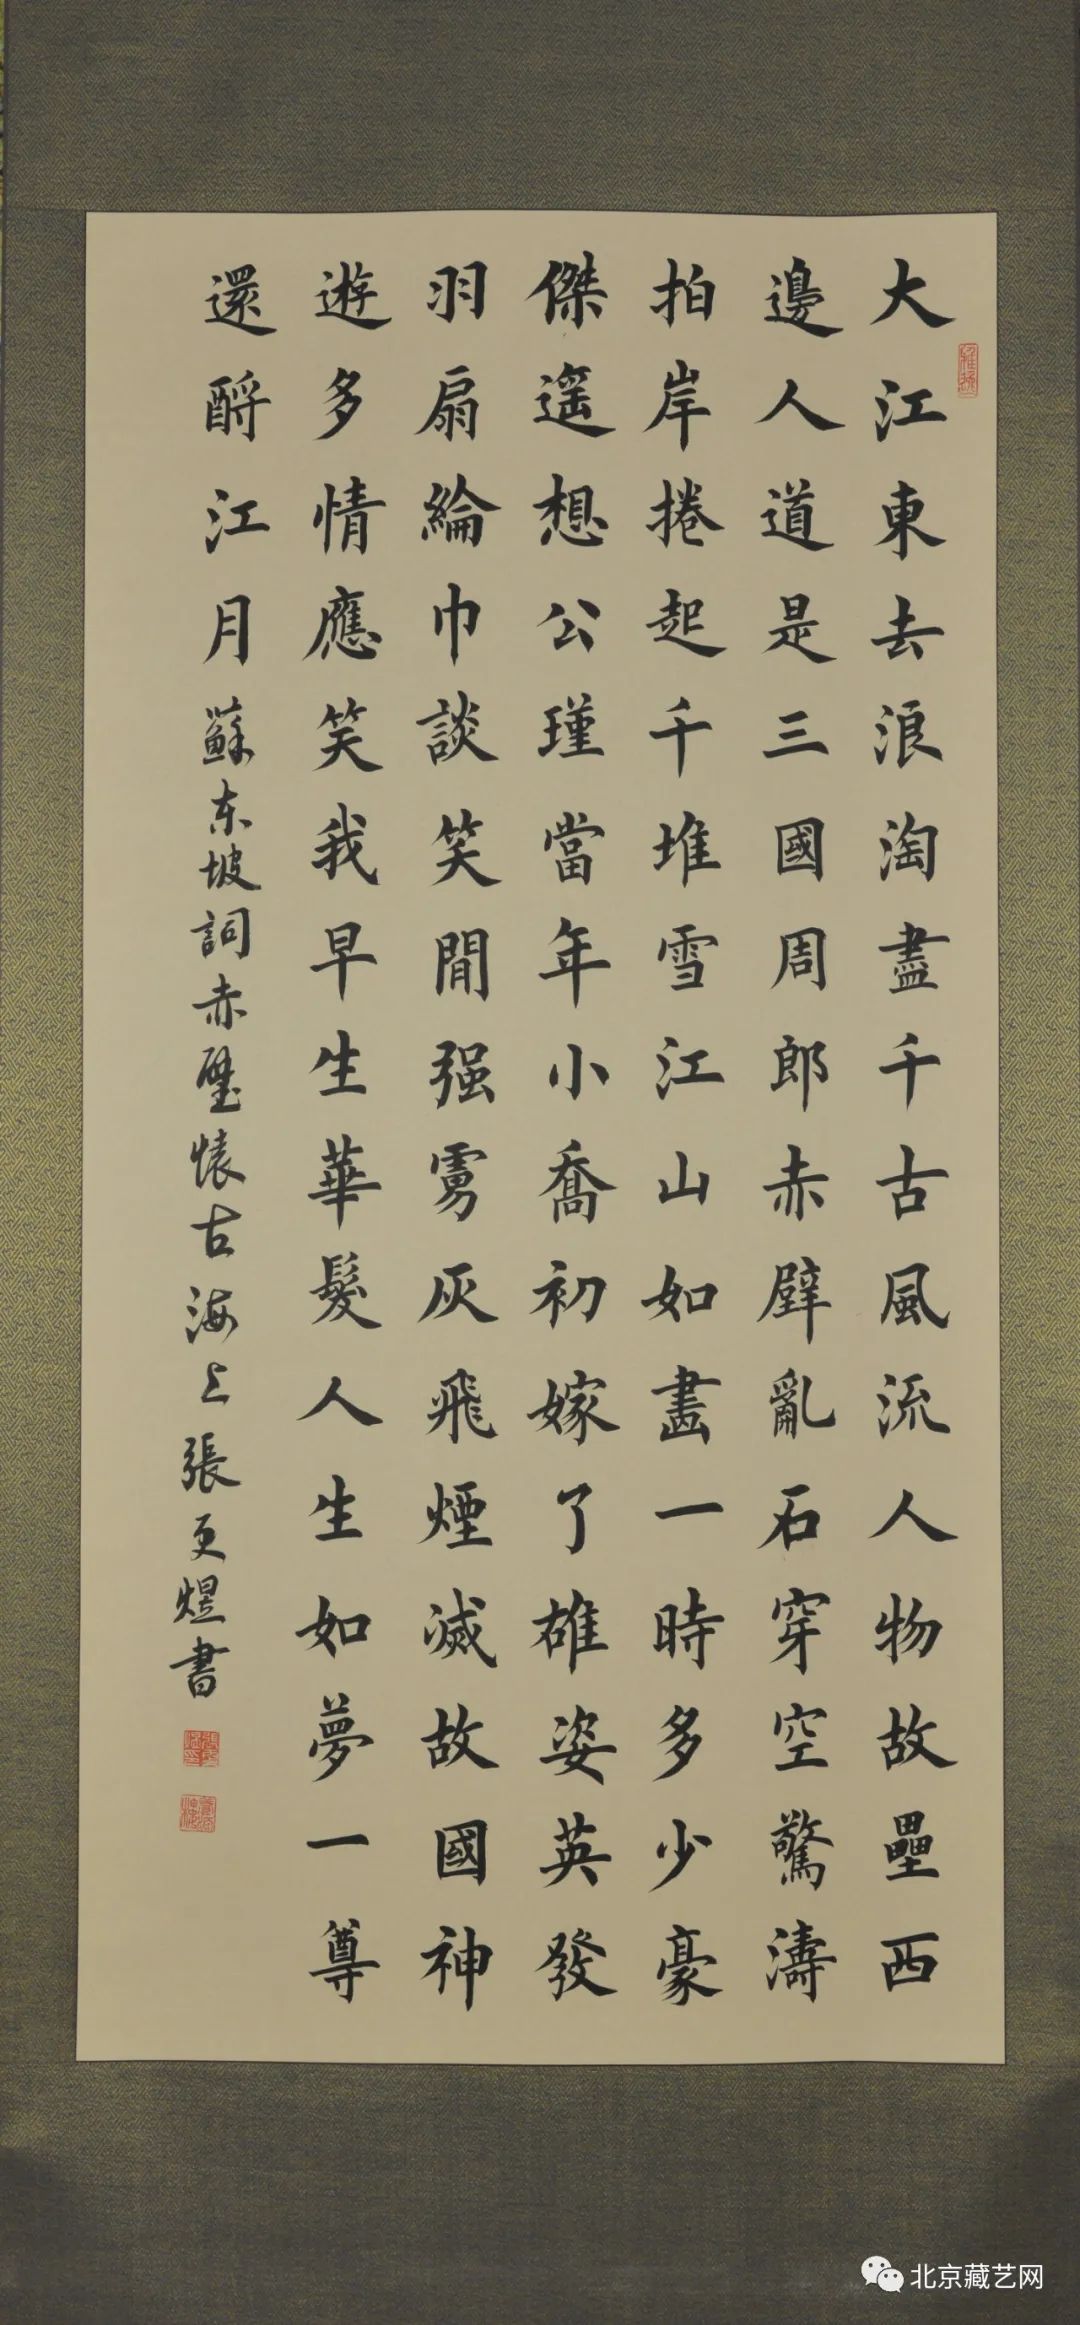 大江東去浪淘盡千古風流人物故壘西
邊人道是三國周郎赤壁亂石穿空驚濤
拍岸捲起千堆雪江山如畫一時多少豪
傑遙想公瑾當年小喬初嫁了雄姿英發
羽扇綸巾談笑間强虜灰飛煙滅故國神
遊多情應笑我早生華髮人生如夢一尊
還酹江月蘇东坡詞赤壁懷古海上張更煜書
北京藏艺网